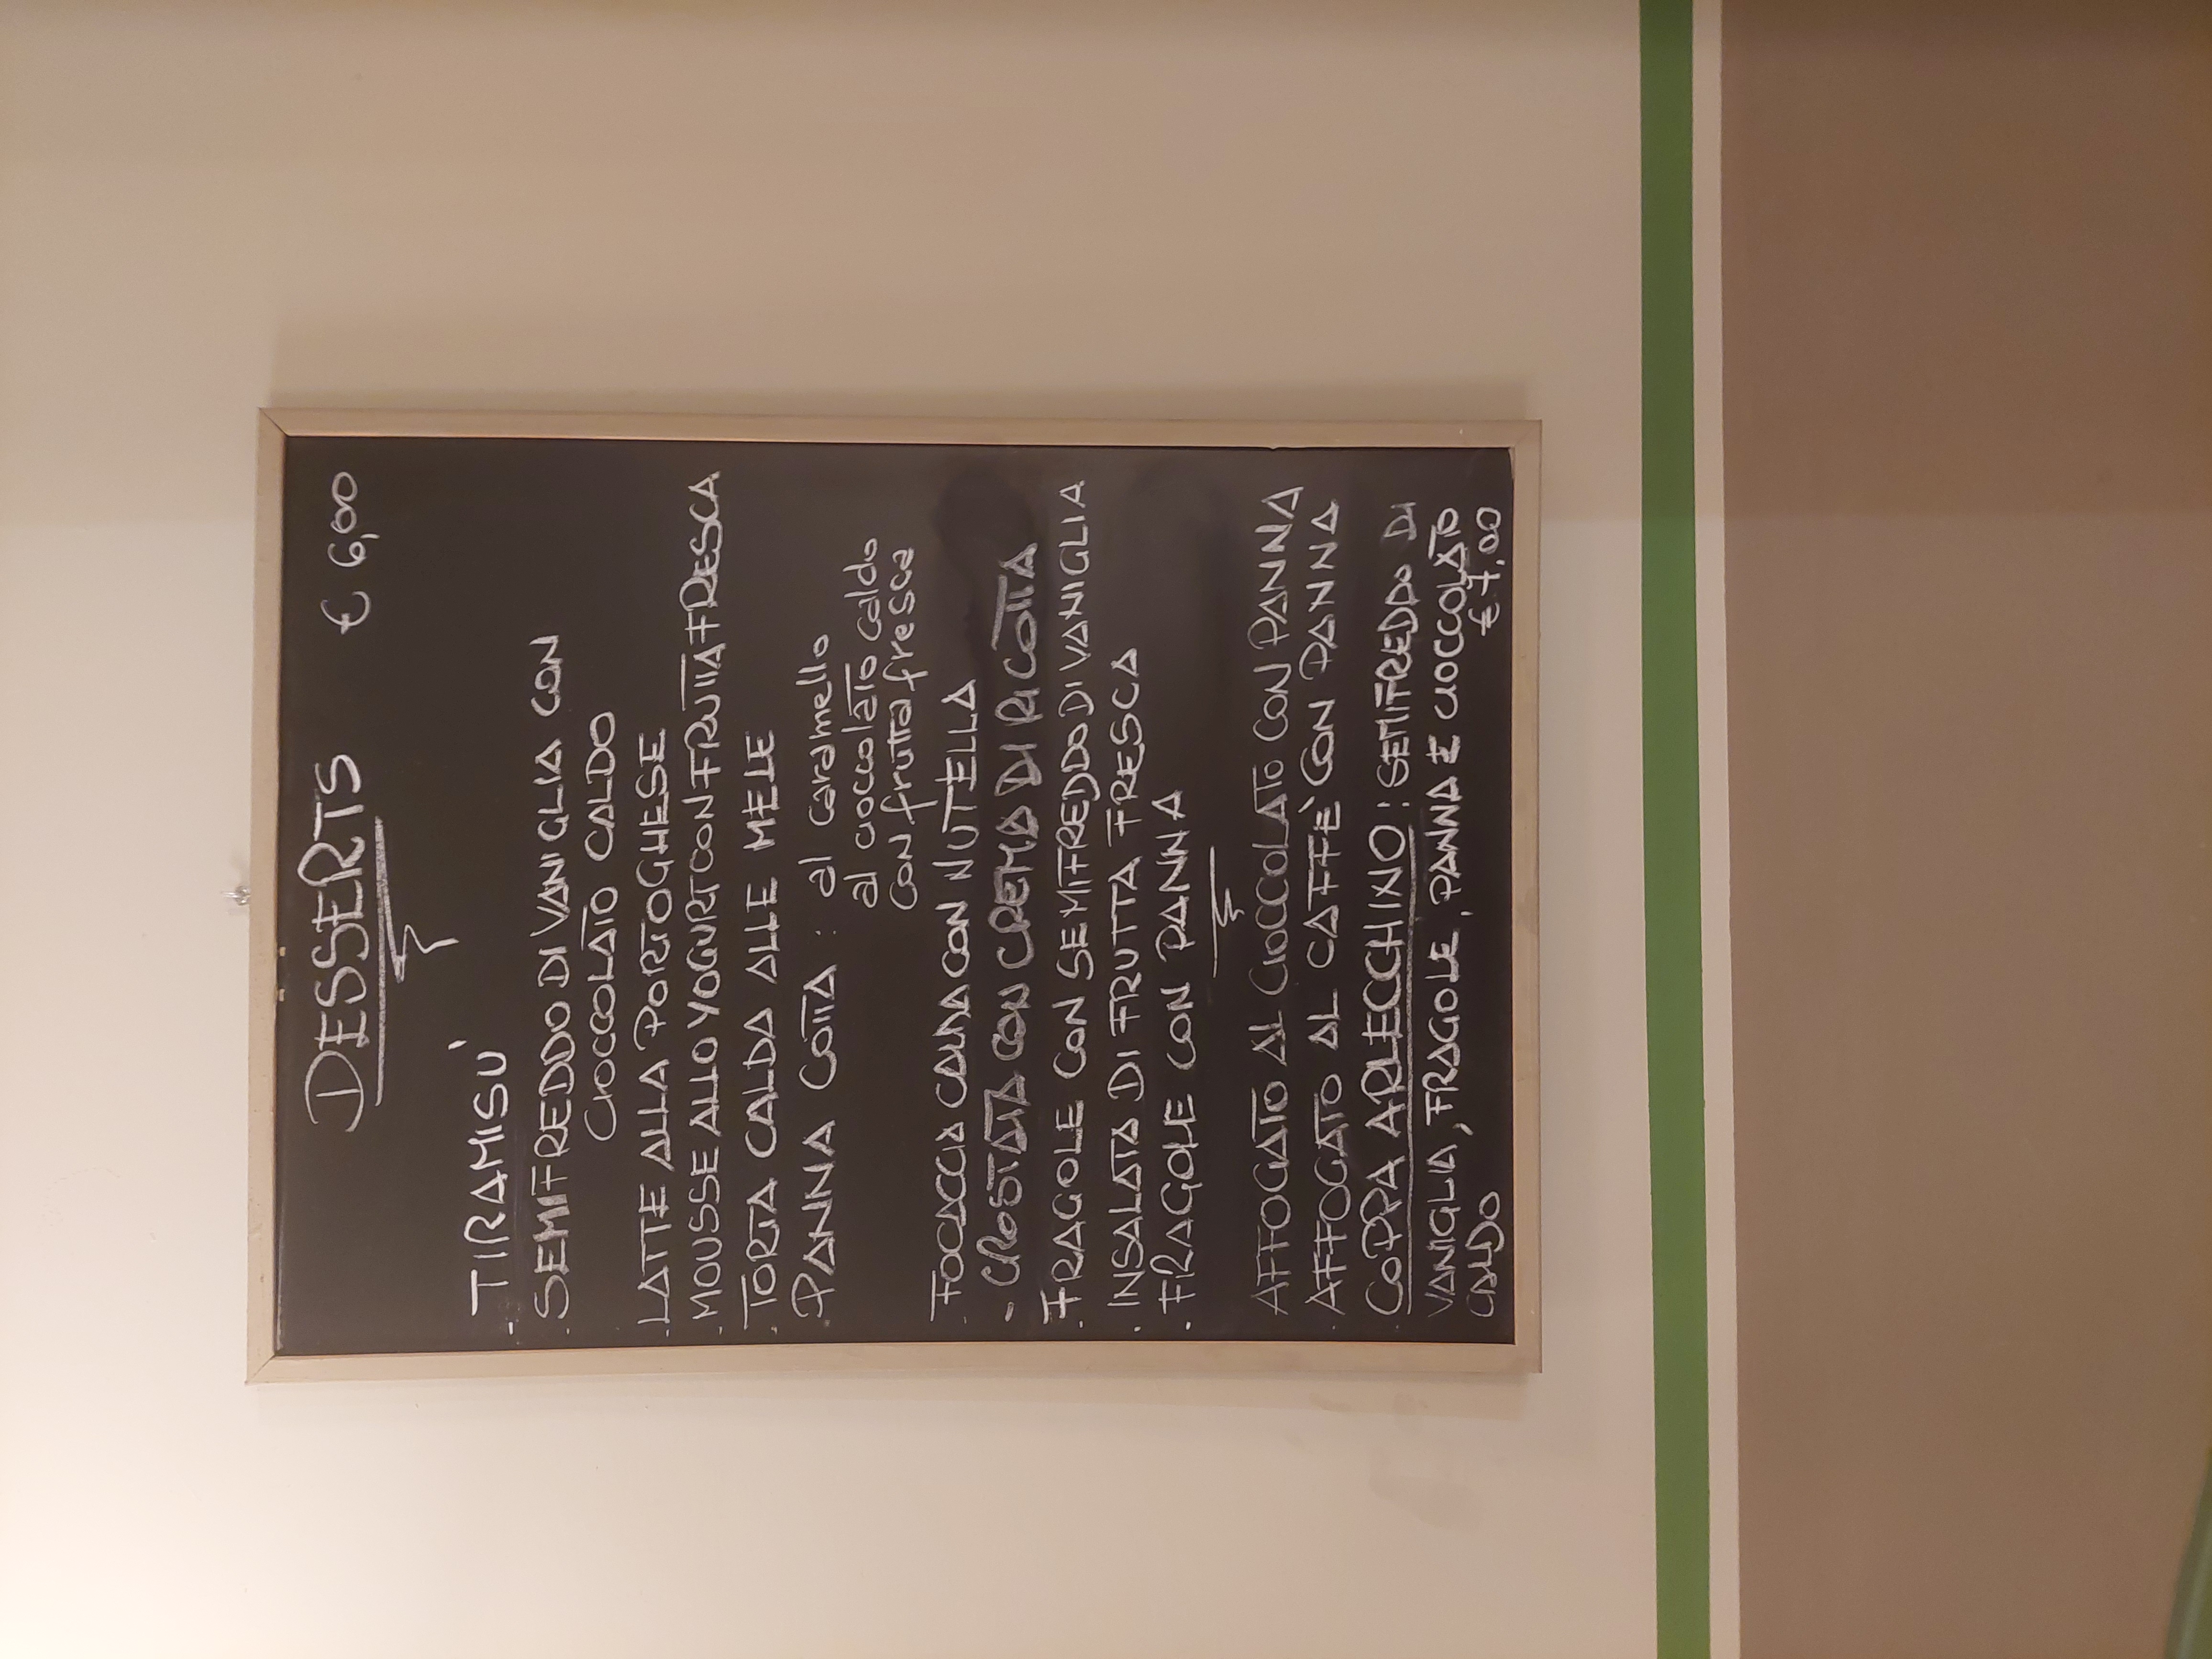 DESSERTS € 6,00
- TIRAMISU'
. SEMIFREDDO DI VANIGLIA CON
CIOCCOLATO CALDO
. LATTE ALLA PORTOGHESE
. MOUSSE ALLO YOGURT CON FRUTTA FRESCA
. TORTA CALDA ALLE MELE
. PANNA COTTA : al caramello
al cioccolato caldo
con frutta fresca
. FOCACCIA CALDA CON NUTELLA
- CROSTATA CON CREMA DI RICOTTA
. FRAGOLE CON SEMIFREDDO DI VANIGLIA
. INSALATA DI FRUTTA FRESCA
. FRAGOLE CON PANNA
AFFOGATO AL CIOCCOLATO CON PANNA
. AFFOGATO AL CAFFE' CON PANNA
. COPPA ARLECCHINO : SEMIFREDDO DI
VANIGLIA, FRAGOLE, PANNA E CIOCCOLATO
CALDO € 7,00